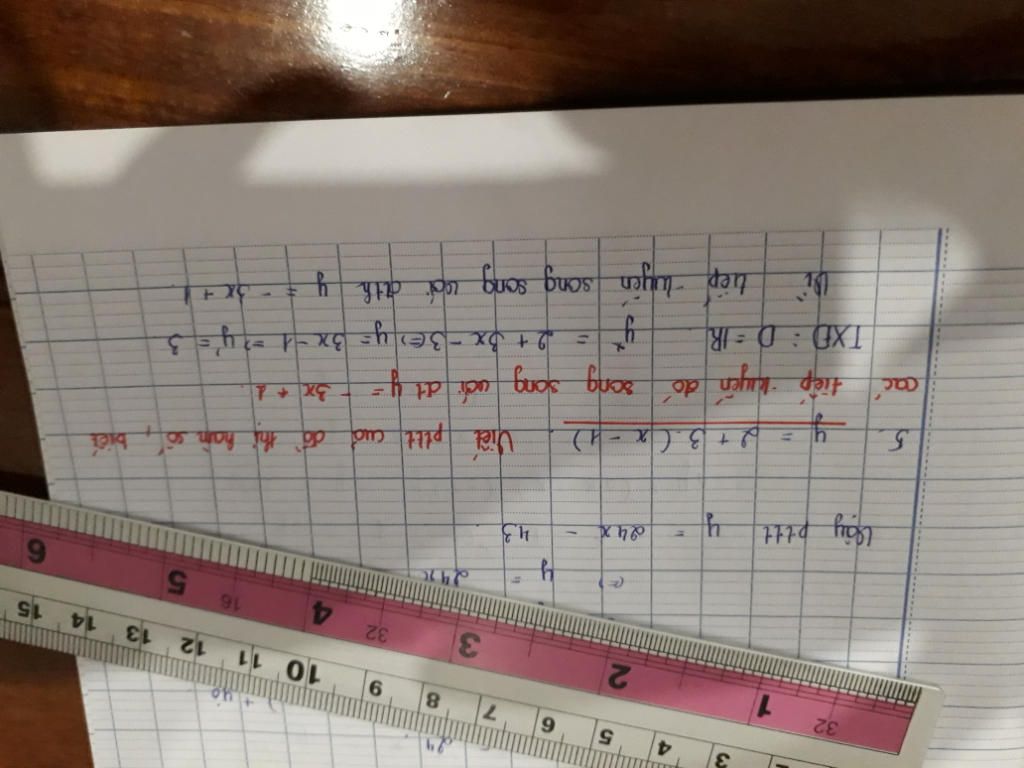 24
) + y₀
(=) y = 24x
Vậy pttt y = 24x - 43
5. y = 2 + 3.(x - 1). Viết pttt của đồ thị hàm số, biết
các tiếp tuyến đó song song với đt y = - 3x + 1.
TXĐ : D = IR y = 2 + 3x - 3 (=) y = 3x - 1 => y' = 3
Vì tiếp tuyến song song với đth y = - 3x + 1
1 2 3 4 5 6
32 32 16
3 4 5 6 7 8 9 10 11 12 13 14 15